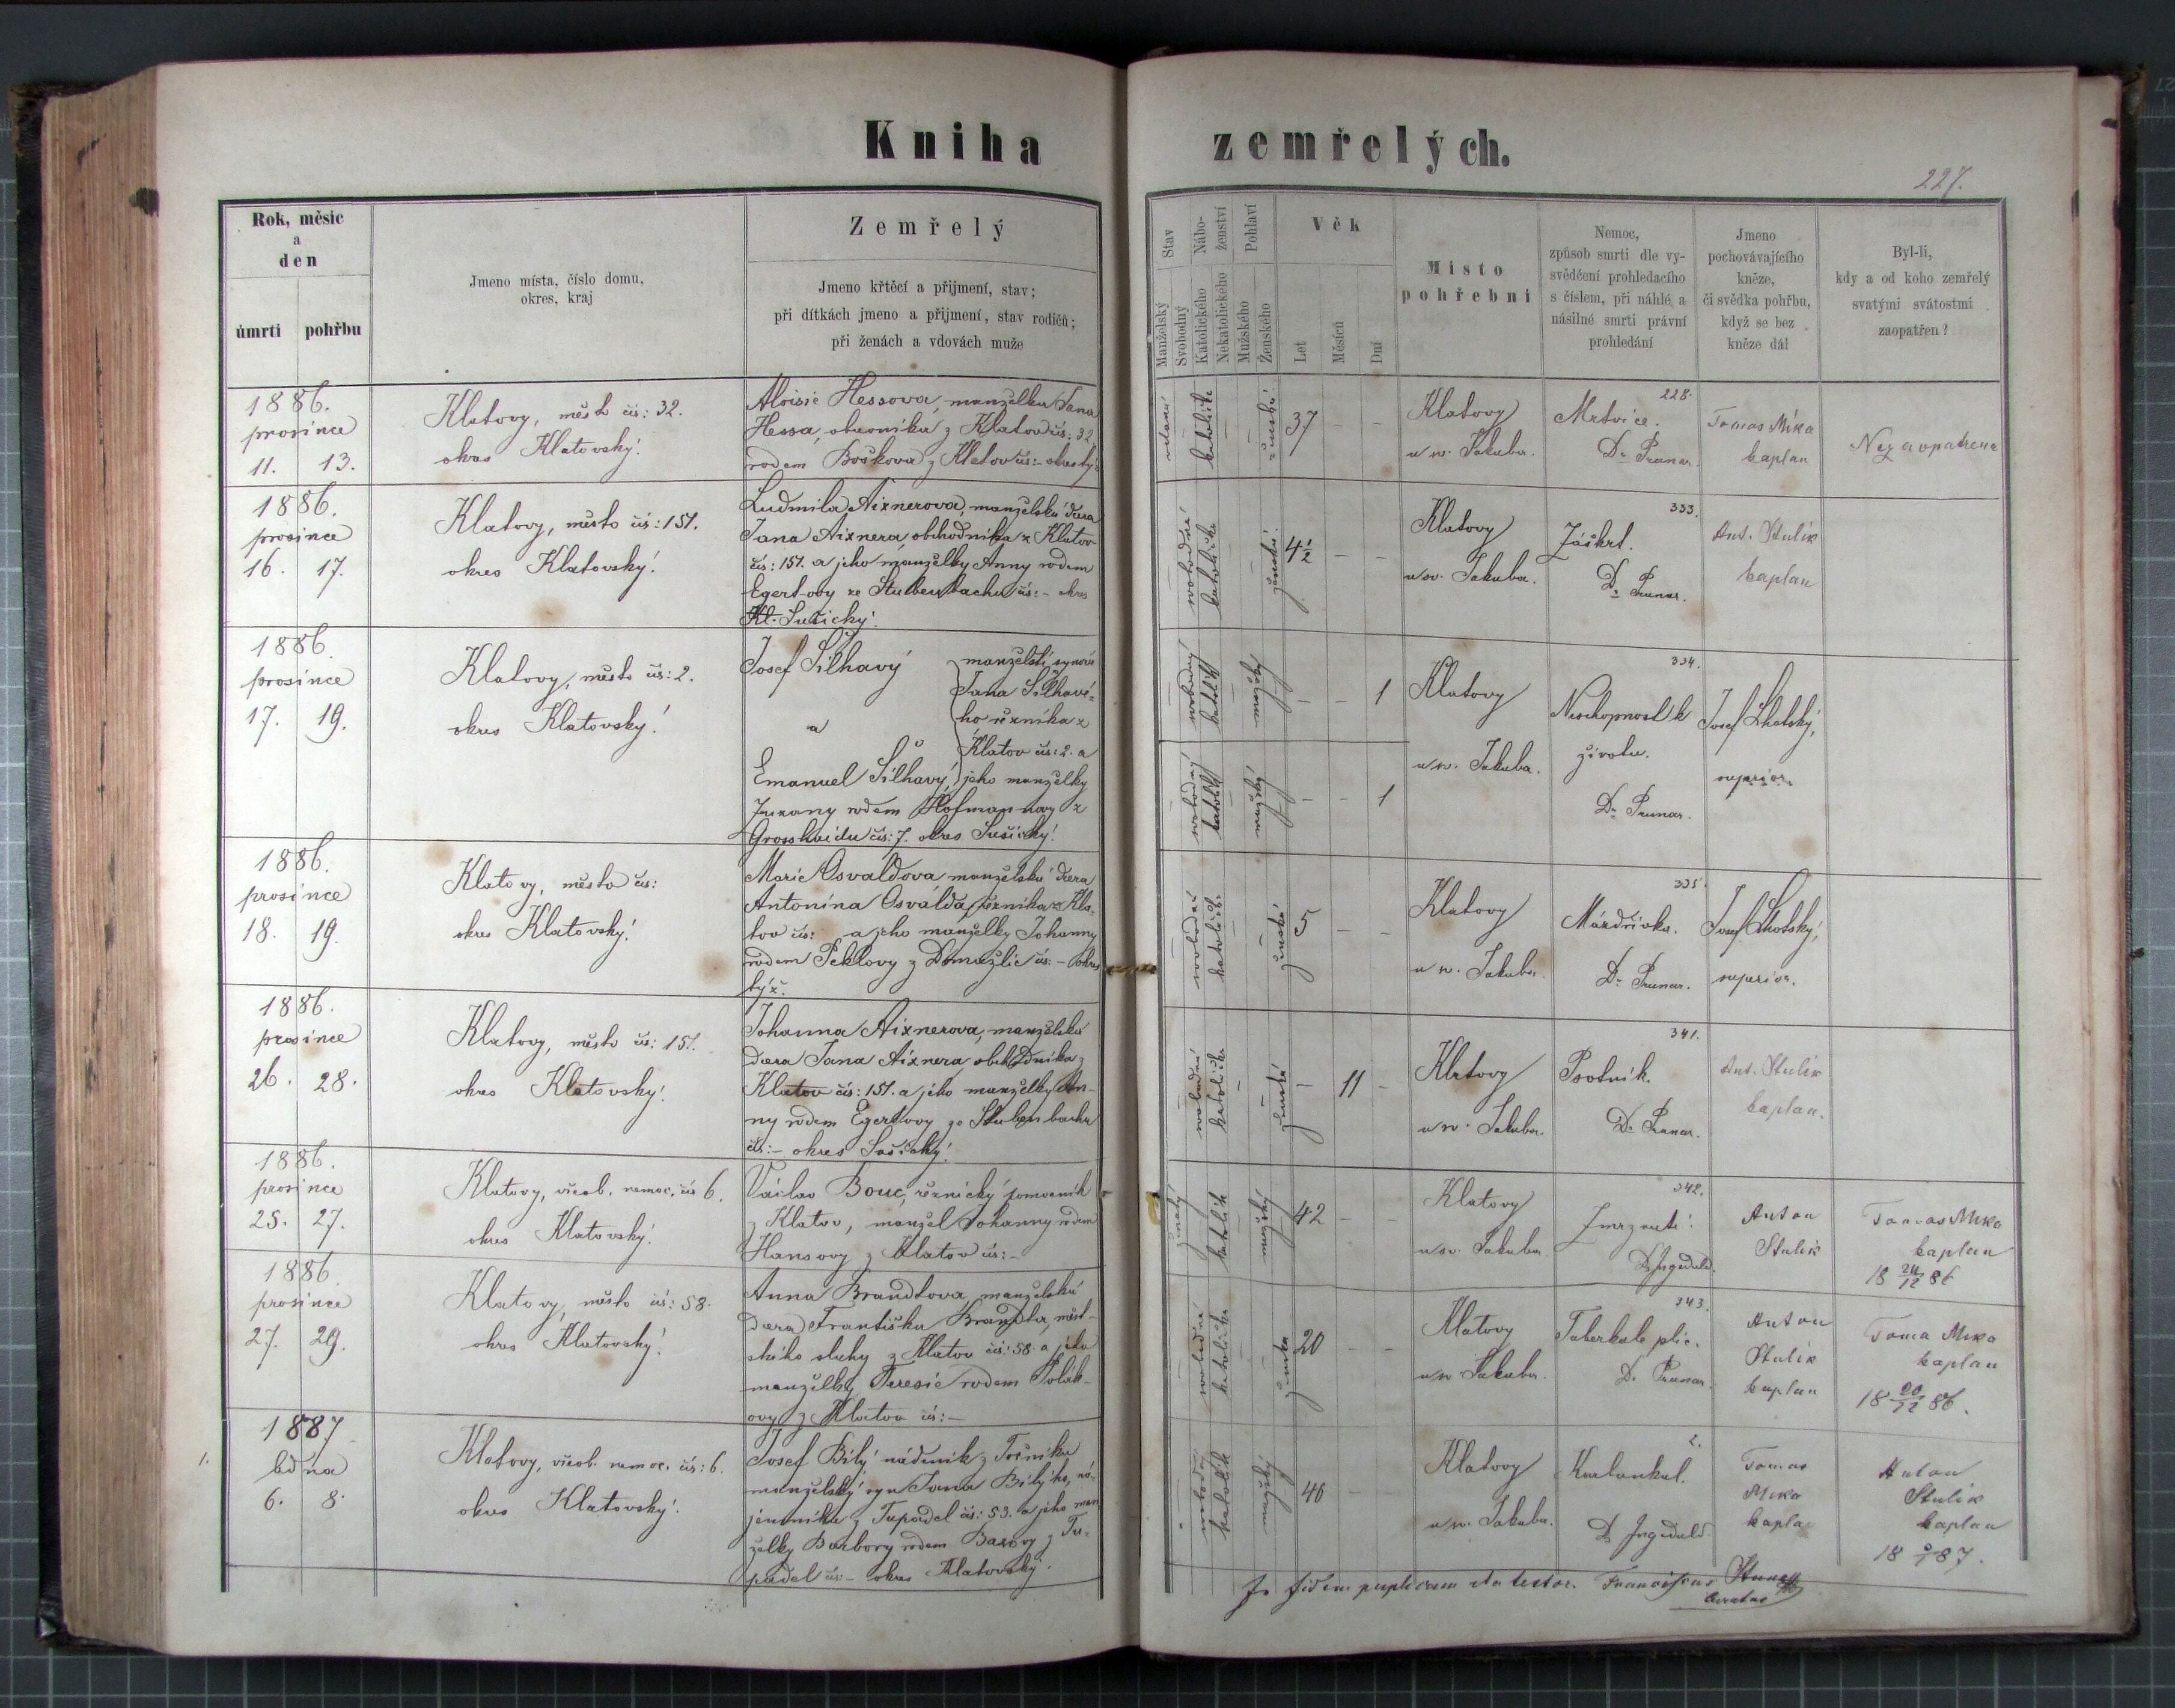 Kniha zemřelých.
227.
Rok, měsíc
a
den
úmrtí pohřbu
Jmeno místa, číslo domu,
okres, kraj
Zemřelý
Jmeno křtěcí a přijmení, stav;
při dítkách jmeno a přijmení, stav rodičů;
při ženách a vdovách muže
Stav
Manželský
Svobodný
Nábo-
ženství
Katolického
Nekatolického
Pohlaví
Mužského
Ženského
Věk
Let
Měsíců
Dní
Místo
pohřební
Nemoc,
způsob smrti dle vy-
svědčení prohledacího
s číslem, při náhlé a
násilné smrti právní
prohledání
Jmeno
pochovávajícího
kněze,
či svědka pohřbu,
když se bez
kněze dál
Byl-li,
kdy a od koho zemřelý
svatými svátostmi
zaopatřen?
1886.
prosince
11. 13.
Klatovy, město čís: 32.
okres Klatovský.
Aloisie Hessova, manželka Jana
Hessa, z Klatov čís: 32,
rodem Boškova z Klatov čís:- okres týž
katolička
37 - -
Klatovy
u sv. Jakuba.
228.
Mrtvice.
Dr Prunar.
Tomas Mika
kaplan
Nezaopatřena
1886.
prosince
16. 17.
Klatovy, město čís: 151.
okres Klatovský.
Ludmila Aixnerova, manželská dcera
Jana Aixnera, obchodníka z Klatov
čís: 151. a jeho manželky Anny rodem
Egertovy ze Stubenbachu čís:- okres
Kl. Sušický.
svobodná
katolička
ženská
4½ - -
Klatovy
u sv. Jakuba.
333.
Záškrt.
Dr Prunar.
Ant. Stulík
kaplan
1886.
prosince
17. 19.
Klatovy, město čís: 2.
okres Klatovský.
Josef Šilhavý
a
Emanuel Šilhavý
manželští synové
Jana Šilhavé-
ho řezníka z
Klatov čís: 2. a
jeho manželky
rodem Hofmannovy z
Grosshaidu čís: 7. okres Sušický.
svobodný
katolík
mužský
- - 1
svobodný
katolík
mužský
- - 1
Klatovy
u sv. Jakuba.
334.
Neschopnost k
životu.
Dr Prunar.
Josef Lhotský,
superior.
1886.
prosince
18. 19.
Klatovy, město čís:
okres Klatovský.
Marie Osvaldova manželská dcera
Antonína Osvalda, řezníka z Kla-
tov čís: a jeho manželky Johanny
rodem Peklovy z Domažlic čís:- okres
týž.
svobodná
katolička
ženská
5 - -
Klatovy
u sv. Jakuba.
335.
Mázdřivka.
Dr Prunar.
Josef Lhotský,
superior.
1886.
prosince
26. 28.
Klatovy, město čís: 151.
okres Klatovský.
Johanna Aixnerova, manželská
dcera Jana Aixnera obchodníka z
Klatov čís: 151. a jeho manželky An-
ny rodem Egertovy ze Stubenbachu
čís:- okres Sušický.
svobodná
katolička
ženská
- 11 -
Klatovy
u sv. Jakuba.
341.
Psotník.
Dr Prunar.
Ant. Stulík
kaplan.
1886.
prosince
25. 27.
Klatovy, všeob. nemoc. čís 6.
okres Klatovský.
Václav Bouc, řeznický pomocník
z Klatov, manžel Johanny rodem
Hansovy z Klatov čís:-
ženatý
katolík
mužský
42 - -
Klatovy
u sv. Jakuba
342.
Zmrznutí.
Dr Ingeduld.
Anton
Stulík
Tomas Mika
kaplan
18 24/12 86
1886.
prosince
27. 29.
Klatovy, město čís: 58.
okres Klatovský.
Anna Brandtova, manželská
dcera Františka Brandta, měst-
ského sluhy z Klatov čís: 58. a jeho
manželky Teresie rodem Polák-
ovy z Klatov čís:-
svobodná
katolička
ženska
20 - -
Klatovy
u sv. Jakuba.
343.
Tuberkule plic.
Dr Prunar.
Anton
Stulík
kaplan
Toma Mika
kaplan
18 20/12 86.
1.
1887
ledna
6. 8.
Klatovy, všeob. nemoc. čís: 6.
okres Klatovský.
Josef Bílý nádeník z Točníku
manželský syn Jana Bílýho, ná-
jemníka z Tupadel čís: 53. a jeho man
želky Barbory rodem z Tu-
padel čís:- okres Klatovský.
svobodný
katolík
mužský
46 - -
Klatovy
u sv. Jakuba.
2.
Karbunkul.
Dr Ingeduld.
Tomas
Mika
kaplan
Anton
Stulík
kaplan
18 87.
In fidem testor. Franciscus
curatus